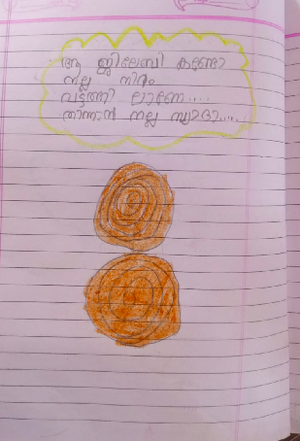 ആ ജിലേബി കണ്ടോ
നല്ല നിറം
വട്ടത്തി ലാണേ.....
തിന്നാൻ നല്ല സ്വാദാ.....